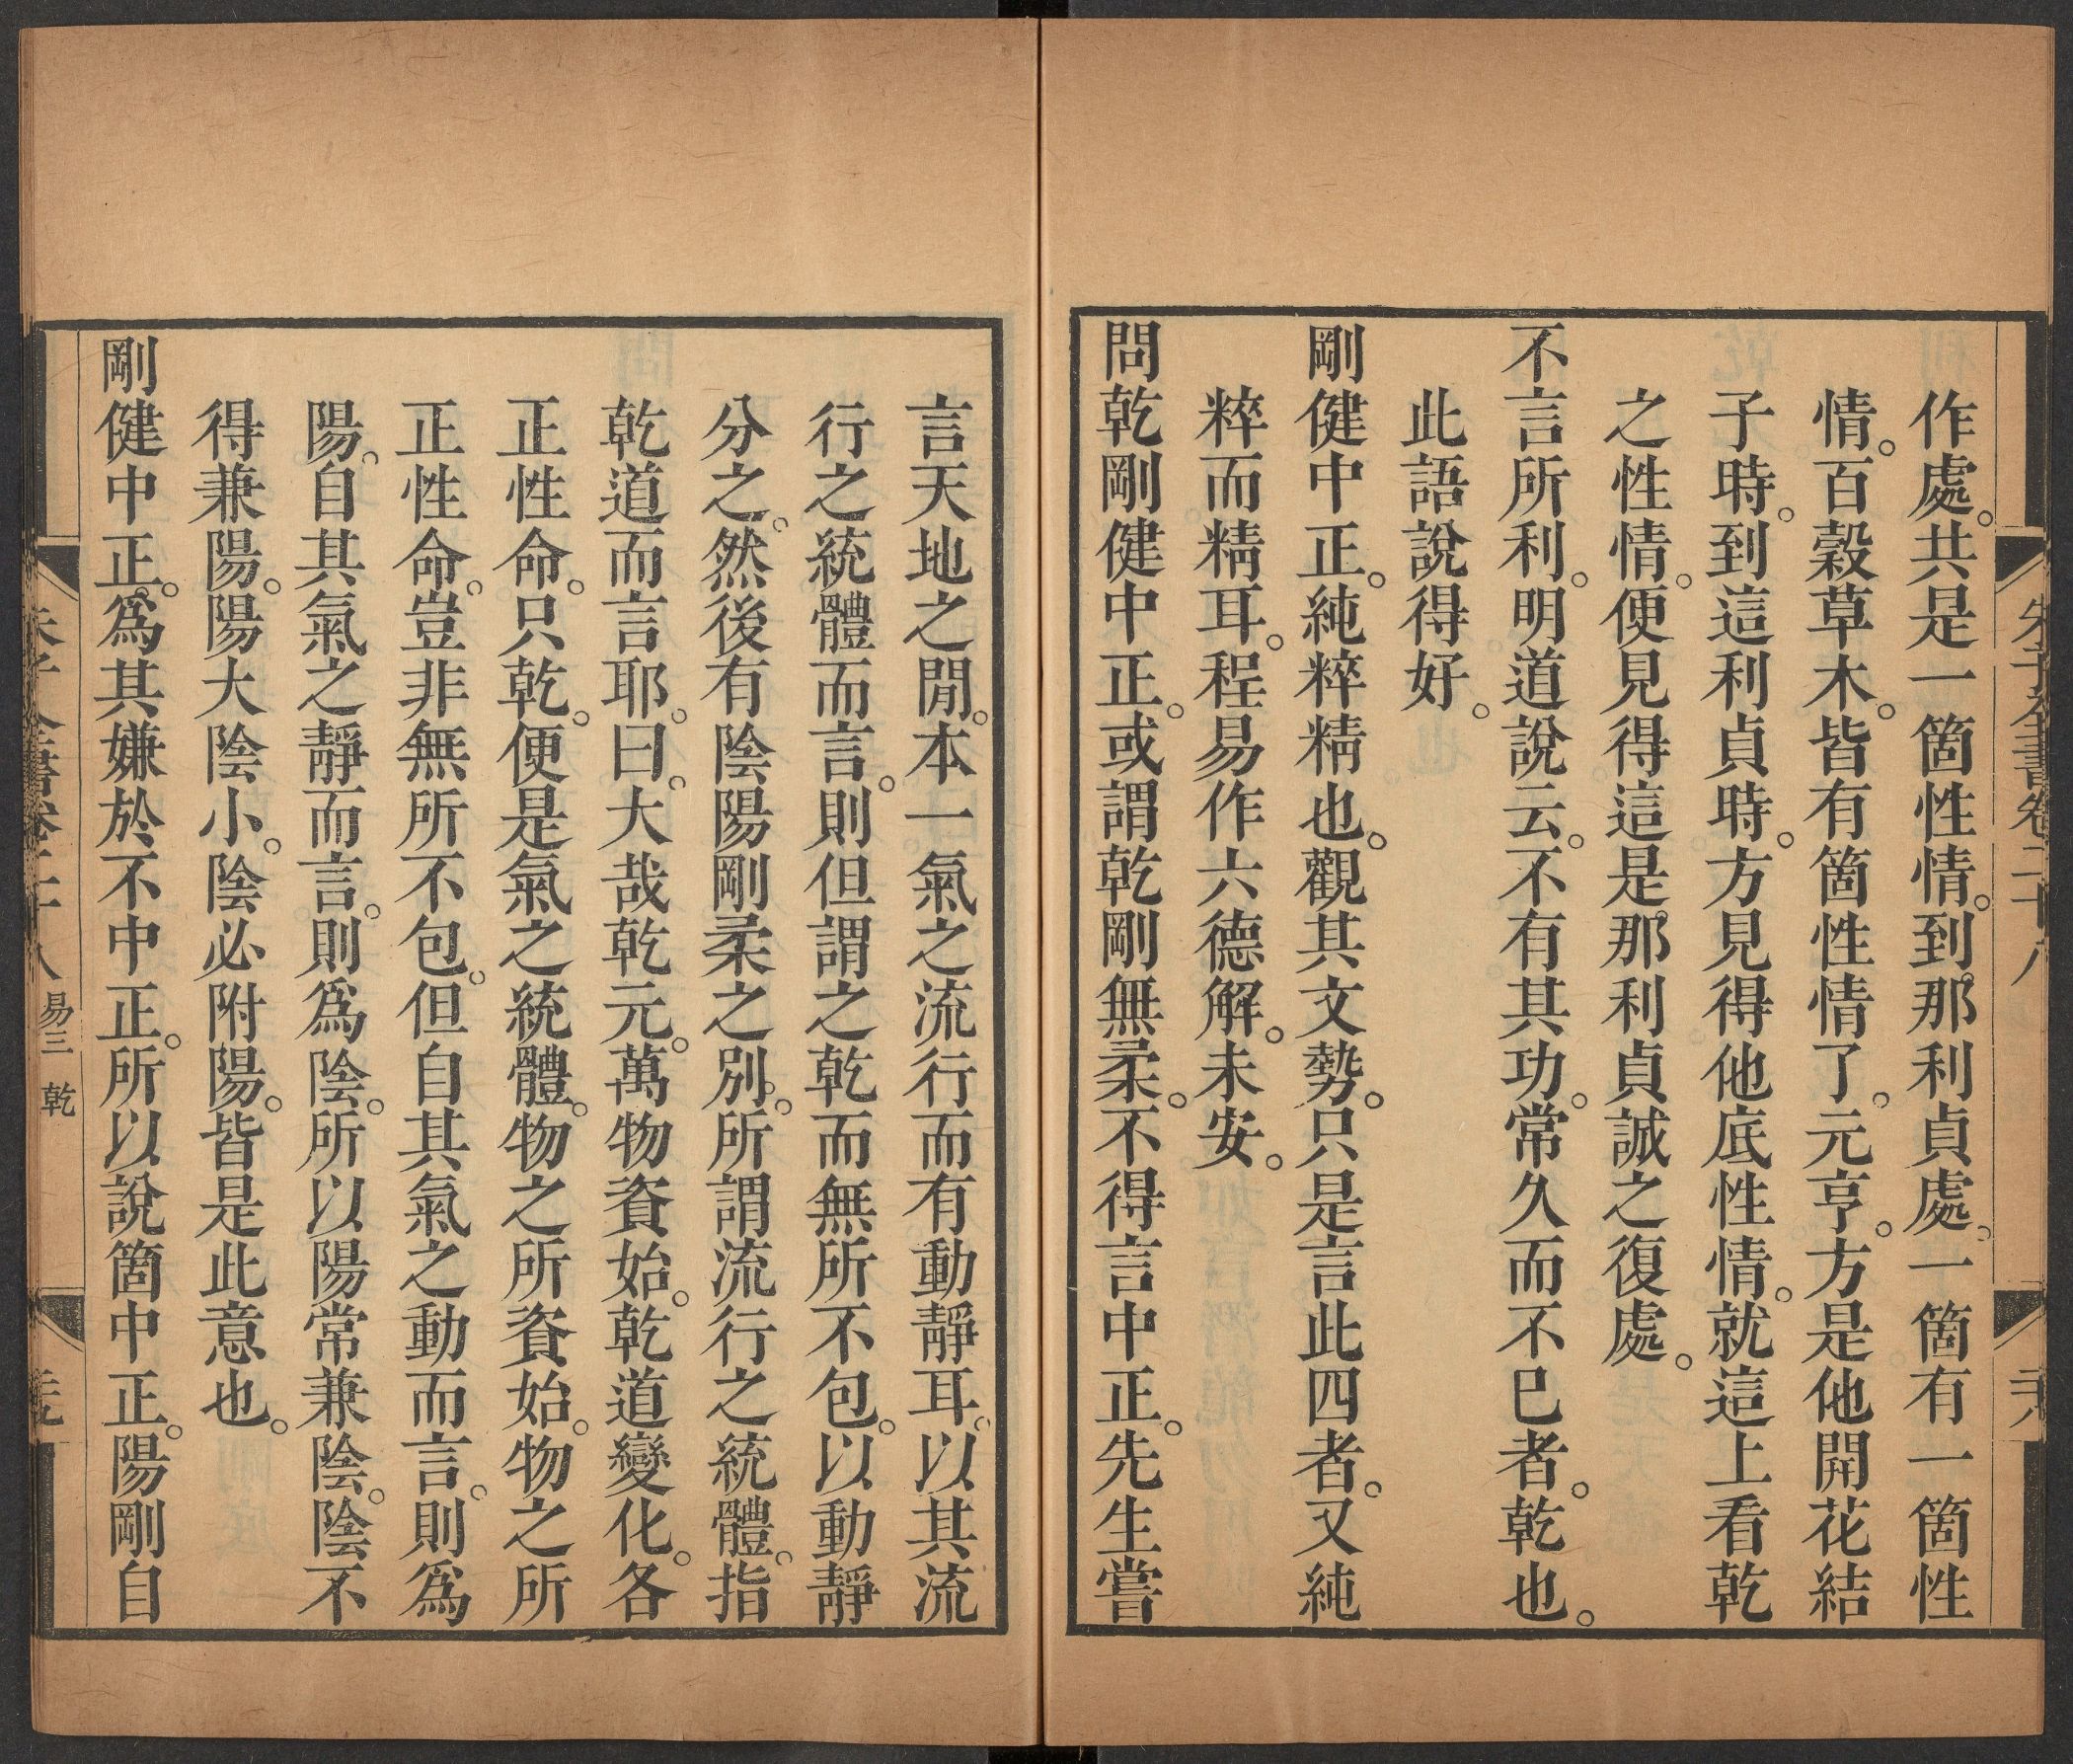 朱子全書卷二十八
作處。共是一箇性情。到那利貞處。一箇有一箇性
情。百穀草木。皆有箇性情了。元亨。方是他開花結
子時。到這利貞時。方見得他底性情。就這上看乾
之性情。便見得這是那利貞誠之復處。
不言所利。明道說云。不有其功。常久而不已者。乾也。
此語說得好。
剛健中正。純粹精也。觀其文勢。只是言此四者。又純
粹而精耳。程易作六德解。未安。
問乾剛健中正。或謂乾剛無柔。不得言中正。先生嘗
言天地之閒。本一氣之流行而有動靜耳。以其流
行之統體而言。則但謂之乾而無所不包。以動靜
分之。然後有陰陽剛柔之別。所謂流行之統體。指
乾道而言耶。曰。大哉乾元。萬物資始。乾道變化。各
正性命。只乾。便是氣之統體。物之所資始。物之所
正性命。豈非無所不包。但自其氣之動而言。則爲
陽。自其氣之靜而言。則爲陰。所以陽常兼陰。陰不
得兼陽。陽大陰小。陰必附陽。皆是此意也。
剛健中正。爲其嫌於不中正。所以說箇中正。陽剛自
易三 乾